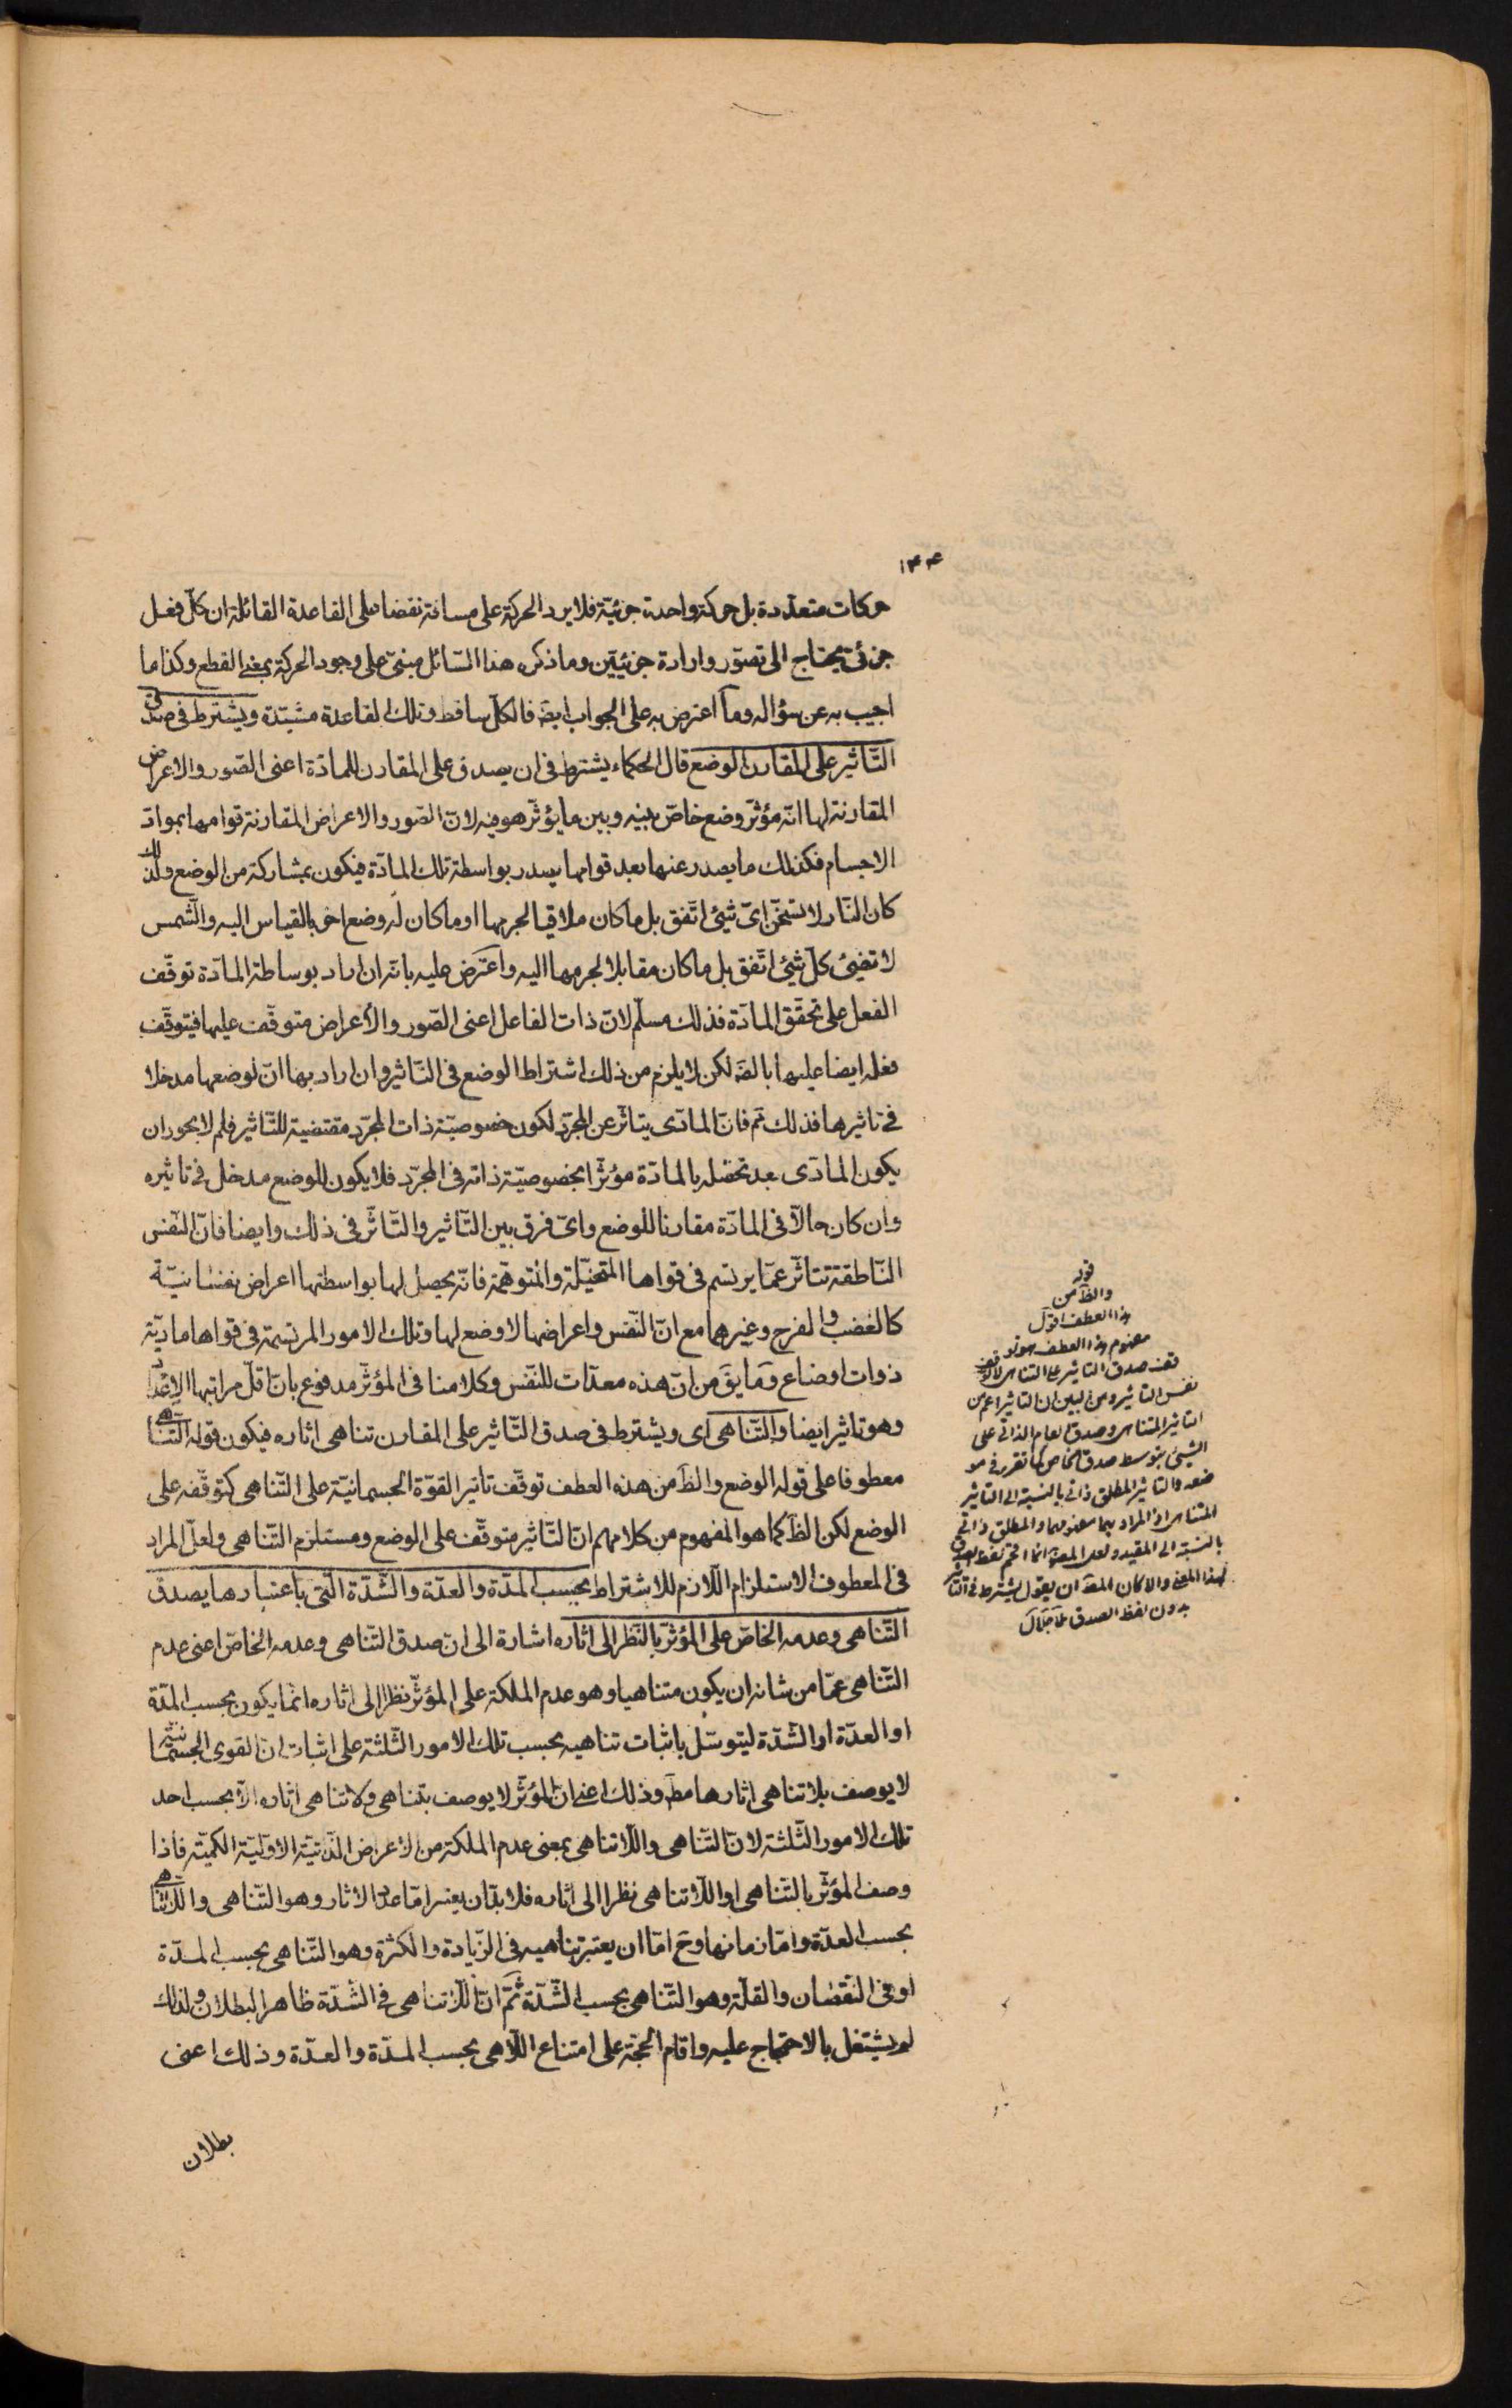 ١٤٤
حركات متعدّدة بل حركة واحدة جزئيّة فلا يرد الحركة على مسافة نقضا على القاعدة القائلة ان كلّ فعل
جزئى يحتاج الى تصوّر وارادة جزئيّتين وما ذكره هذا السّائل مبنىّ على وجود الحركة بمعنى القطع وكذا ما
اجيب به عن سؤاله وما اعترض به على الجواب ايضَ فالكلّ ساقط وتلك القاعدة مشيّدة ويشترط فى صدق
التّاثير على المقارن الوضع قال الحكماء يشترط فى ان يصدق على المقارن للمادّة اعنى الصّور والاعراض
المقارنة لها انّه مؤثّر وضع خاصّ بينه وبين ما يؤثّر هو فيه لانّ الصّور والاعراض المقارنة قوامها بموادّ
الاجسام فكذلك ما يصدر عنها بعد قوامها يصدر بواسطة تلك المادّة فيكون بمشاركة من الوضع ولذلك
كان النّار لا تسخّن اىّ شئ اتّفق بل ما كان ملاقيا لجرمها او ما كان له وضع اخر بالقياس اليه والشّمس
لا تضئ كلّ شئ اتّفق بل ما كان مقابلا لجرمها اليه واعترض عليه بانّه ان اراد بوساطة المادّة توقّف
الفعل على تحقّق المادّة فذلك مسلّم لانّ ذات الفاعل اعنى الصّور والأعراض متوقّف عليها فيتوقّف
فعله ايضا عليها بالضَ لكن لا يلزم من ذلك اشتراط الوضع فى التّاثير وان اراد بها انّ لوضعها مدخلا
فى تاثيرها فذلك مَم فانّ المادّى يتاثّر عن المجرّد لكون خصوصيّة ذات المجرّد مقتضية للتّاثير فلم لا يجوز ان
يكون المادّى بعد تحصّله بالمادّة مؤثّرا بخصوصيّة ذاته فى المجرّد فلا يكون للوضع مدخل فى تاثيره
وان كان حالاّ فى المادّة مقارنا للوضع واىّ فرق بين التّاثير والتّاثّر فى ذلك وايضا فانّ النّفس
النّاطقة تتاثّر عمّا يرتسم فى قواها المتخيّلة والمتوهّمة فانّه يحصل لها بواسطتها اعراض نفسانيّة
كالغضب والفرح وغيرهما مع انّ النّفس واعراضها لا وضع لها وتلك الامور المرتسمة فى قواها ماديّة
ذوات اوضاع وما يقَ من انّ هذه معدّات للنّفس وكلامنا فى المؤثّر مدفوع بانّ اقلّ مراتبها الاعداد
وهو تاثير ايضا والتّناهى اى ويشترط فى صدق التّاثير على المقارن تناهى اثاره فيكون قوله التّناهى
معطوفا على قوله الوضع والظَ من هذه العطف توقّف تاثير القوّة الجسمانيّة على التّناهى كتوقّفه على
الوضع لكن الظَ كما هو المفهوم من كلامهم انّ التّاثير متوقّف على الوضع ومستلزم التّناهى ولعلّ المراد
فى المعطوف الاستلزام اللّازم للاشتراط بحسب المدّة والعدّة والشّدّة الّتى باعتبارها يصدق
التّناهى وعدمه الخاصّ على المؤثّر بالنّظر الى اثاره اشارة الى انّ صدق التّناهى وعدمه الخاصّ اعنى عدم
التّناهى عمّا من شانه ان يكون متناهيا وهو عدم الملكة على المؤثّر نظرا الى اثاره انّما يكون بحسب المدّة
او العدّة او الشّدّة ليتوسّل باثبات تناهيه بحسب تلك الامور الثّلثة على اثبات انّ القوى الجسمانيّة
لا يوصف بلا تناهى اثارها مطَ وذلك اعنى انّ المؤثّر لا يوصف بتناهى ولا تناهى اثاره الاّ بحسب احد
تلك الامور الثّلثة لانّ التّناهى واللّاتناهى بمعنى عدم الملكة من الاعراض الذّاتيّة الاوّليّة الكميّة فاذا
وصف المؤثّر بالتّناهى او اللّاتناهى نظرا الى اثاره فلا بدّ ان يعتبر امّا عدد الاثار وهو التّناهى واللّاتناهى
بحسب العدّة وامّا زمانها وحَ امّا ان يعتبر تناهيه فى الزّيادة والكثرة وهو التّناهى بحسب المدّة
او فى النّقصان والقلّة وهو التّناهى بحسب الشّدّة ثمّ انّ اللّاتناهى فى الشّدّة ظاهر البطلان ولذلك
لم يشتغل بالاحتجاج عليه واقام الحجّة على امتناع اللّاهى بحسب المدّة والعدّة وذلك اعنى
بطلان
قوله
والظَ من
هذا العطف اقول
مفهوم هذا العطف هو توقف
صدق التاثير على التناهى لا توقف
نفس التاثير ومن البين ان التاثير اعم من
التاثير المتناهى وصدق العام الذاتى على
الشيئ بتوسط صدق الخاص كما تقرر فى مو
ضعه والتاثير المطلق ذاتى بالنسبة الى التاثير
المتناهى اذ المراد بهما مفهومهما والمطلق ذاتى
بالنسبة الى المقيد ولعل المصَ انما اقحم لفظ الصدق
لهذا المعنى والا كان المصَ ان يقول يشترط فى التاثير
بدون لفظ الصدق